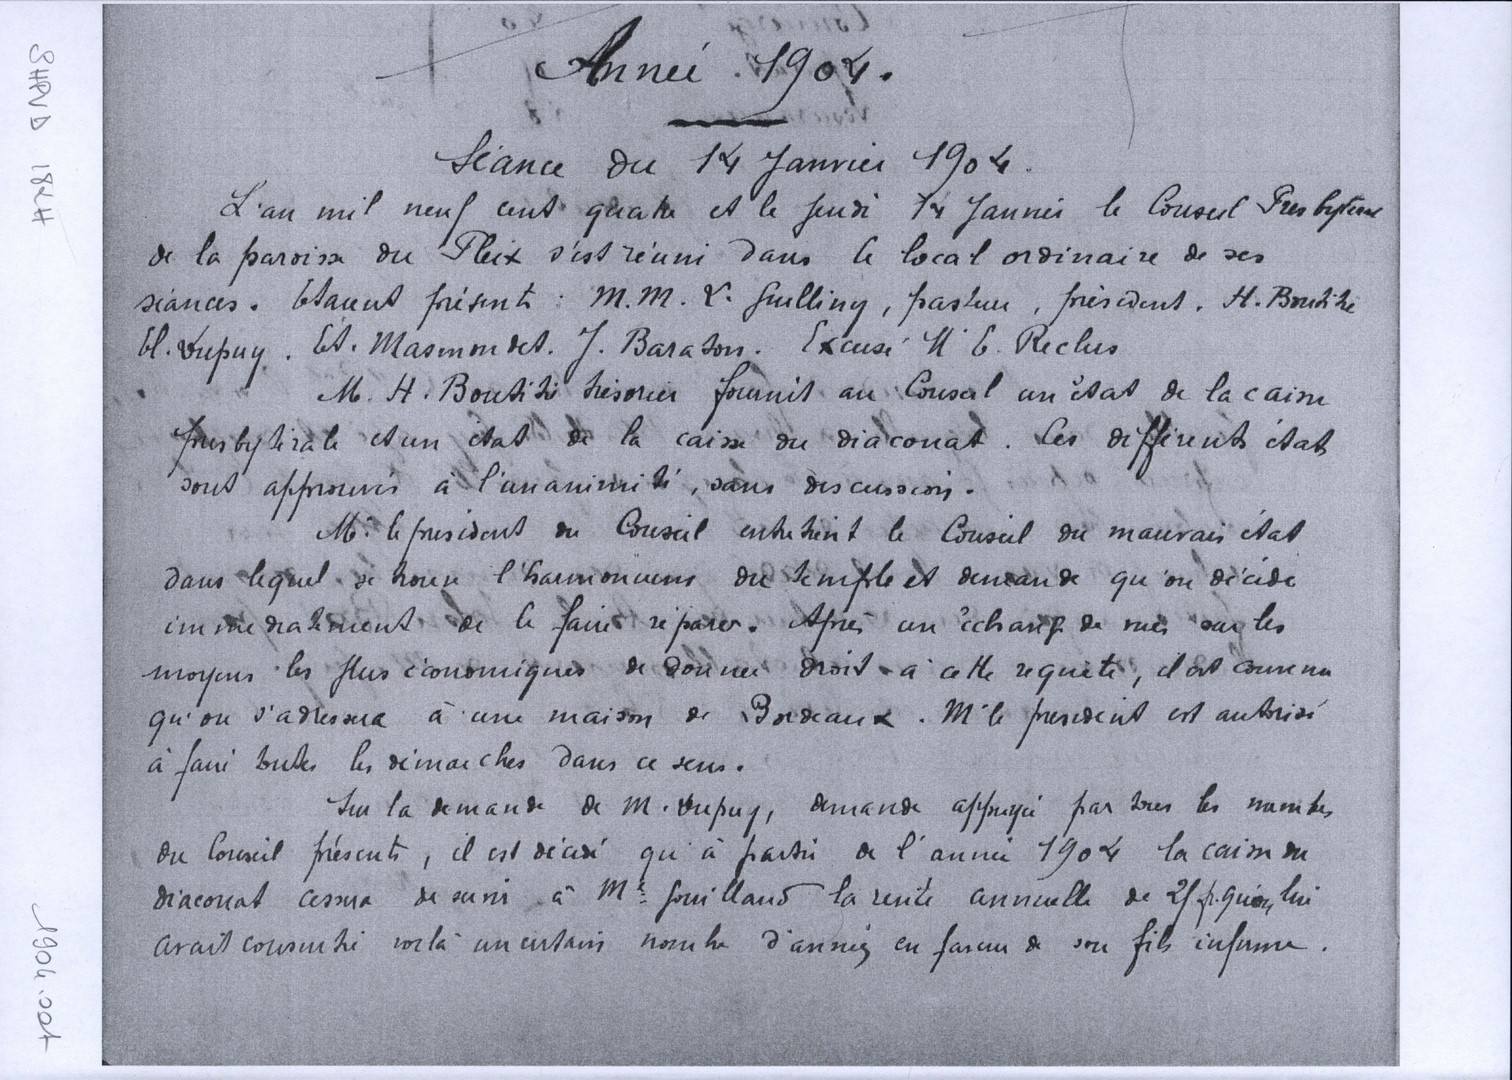 Année 1904.
Séance du 14 Janvier 1904.
L'an mil neuf cent quatre et le jeudi 14 Janvier le Conseil Presbytéral
de la paroisse du Fleix s'est réuni dans le local ordinaire de ses
séances. Etaient présents : M.M. L. Guilliny, pasteur, président. H. Boutitie
El. Dupuy. Et. Masmondet. J. Baraton. Excusé M E. Reclus
M. H. Boutitié trésorier fournit au Conseil un état de la caisse
presbytérale et un état de la caisse du diaconat. Ces différents états
sont approuvés à l'unanimité, sans discussion.
Mr le président du Conseil entretient le Conseil du mauvais état
dans lequel se trouve l'harmonium du temple et demande qu'on décide
immédiatement de le faire réparer. Après un échange de vues sur les
moyens les plus économiques de donner droit à cette requête, il est convenu
qu'on s'adressera à une maison de Bordeaux. Mr le président est autorisé
à faire toutes les démarches dans ce sens.
Sur la demande de M. Dupuy, demande appuyée par tous les membres
du Conseil présents, il est décidé qu'à partir de l'année 1904 la caisse du
diaconat cessera de servir à Mr Gouillaud la rente annuelle de qu'on lui
avait consentie voilà un certain nombre d'années en faveur de son fils infirme.
SHPVD 1824
1904.001